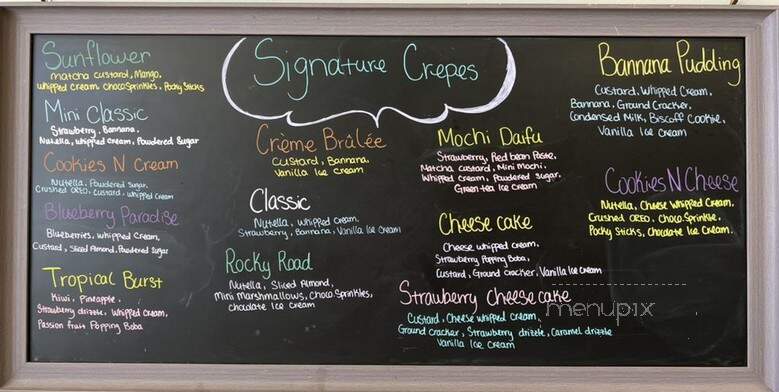 Signature Crepes
Sunflower
matcha custard, Mango,
whipped cream, choco Sprinkles, Pocky Sticks
Mini Classic
Strawberry, Bannana,
Nutella, whipped cream, Powdered Sugar
Cookies N Cream
Nutella, Powdered Sugar,
Crushed oreo, Custard, whipped Cream
Blueberry Paradise
Blueberries, whipped Cream,
Custard, Sliced Almond, Powdered Sugar
Tropical Burst
Kiwi, Pineapple,
Strawberry drizzle, Whipped Cream,
Passion fruit Popping Boba
Crème Brûlée
Custard, Bannana,
Vanilla Ice Cream
Classic
Nutella, Whipped Cream,
Strawberry, Bannana, Vanilla Ice Cream
Rocky Road
Nutella, Sliced Almond,
Mini Marshmallows, Choco Sprinkles,
chocolate Ice Cream
Mochi Daifu
Strawberry, Red bean Paste,
Matcha custard, Mini mochi,
Whipped cream, Powdered sugar,
Green tea Ice cream
Cheese cake
Cheese whipped cream,
Strawberry Popping Boba,
Custard, Ground Cracker, Vanilla Ice Cream
Strawberry Cheese cake
Custard, Cheese whipped cream,
Ground cracker, Strawberry drizzle, Caramel drizzle
Vanilla Ice Cream
Bannana Pudding
Custard, Whipped Cream,
Bannana, Ground Cracker,
Condensed Milk, Biscoff Cookie,
Vanilla Ice Cream
Cookies N Cheese
Nutella, Cheese Whipped Cream,
Crushed oreo, Choco Sprinkle,
Pocky Sticks, Chocolate Ice Cream.
menupix